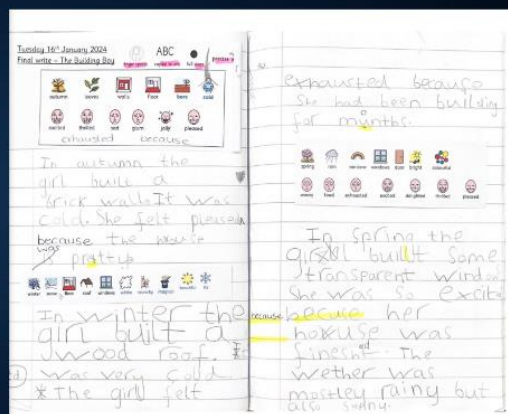 Tuesday 16th January 2024
Final write – The Building Boy
ABC
autumn leaves walls floor bare cold
excited thrilled sad glum jolly pleased
exhausted because
In autumn the
girl built a
brick walls. It was
cold. She felt pleased
because the house
was
prattup
winter snow floor roof windows white
In winter the
girl built a
wood roof. It
was very cold.
* The girl felt
exhausted because
She had been building
for munths.
spring rain rainbow windows door bright colourful
tired exhausted excited delighted thrilled pleased
In Spring the
girl built some
transparent window
She was so excited
because becuse her
house was
finesht ed. The
wether was
mostley rainy but
also sunny.